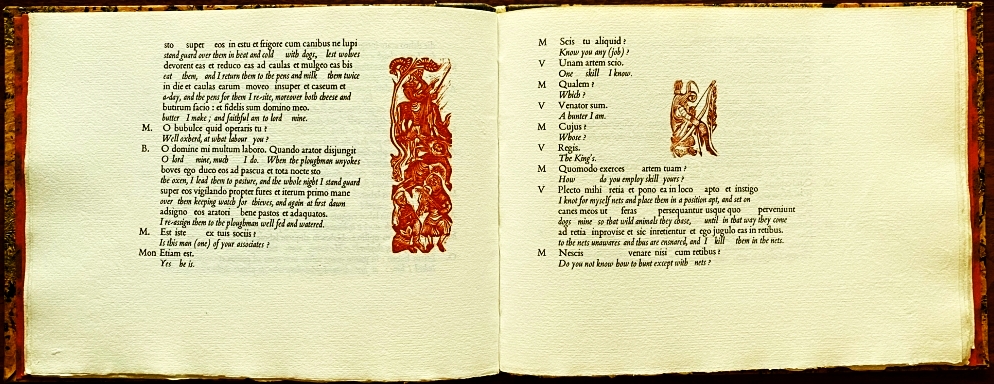 sto super eos in estu et frigore cum canibus ne lupi
stand guard over them in heat and cold with dogs, lest wolves
devorent eas et reduco eas ad caulas et mulgeo eas bis
eat them, and I return them to the pens and milk them twice
in die et caulas earum moveo insuper et caseum et
a-day, and the pens for them I re-site, moreover both cheese and
butirum facio : et fidelis sum domino meo.
butter I make ; and faithful am to lord mine.
M. O bubulce quid operaris tu ?
Well oxherd, at what labour you ?
B. O domine mi multum laboro. Quando arator disjungit
O lord mine, much I do. When the ploughman unyokes
boves ego duco eos ad pascua et tota nocte sto
the oxen, I lead them to pasture, and the whole night I stand guard
super eos vigilando propter fures et iterum primo mane
over them keeping watch for thieves, and again at first dawn
adsigno eos aratori bene pastos et adaquatos.
I re-assign them to the ploughman well fed and watered.
M. Est iste ex tuis sociis ?
Is this man (one) of your associates ?
Mon Etiam est.
Yes he is.
M Scis tu aliquid ?
Know you any (job) ?
V Unam artem scio.
One skill I know.
M Qualem ?
Which ?
V Venator sum.
A hunter I am.
M Cujus ?
Whose ?
V Regis.
The King's.
M Quomodo exerces artem tuam ?
How do you employ skill yours ?
V Plecto mihi retia et pono ea in loco apto et instigo
I knot for myself nets and place them in a position apt, and set on
canes meos ut feras persequantur usque quo perveniunt
dogs mine so that wild animals they chase, until in that way they come
ad retia inprovise et sic inretientur et ego jugulo eas in retibus.
to the nets unawares and thus are ensnared, and I kill them in the nets.
M Nescis venare nisi cum retibus ?
Do you not know how to hunt except with nets ?